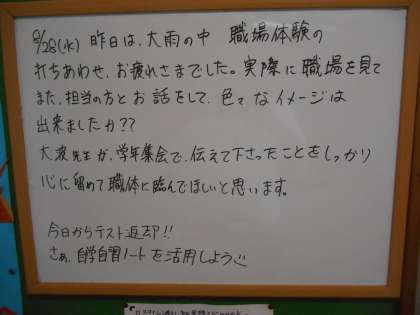 8/28(水) 昨日は、大雨の中 職場体験の
打ちあわせ、お疲れさまでした。実際に職場を見て
また、担当の方とお話をして、色々なイメージは
出来ましたか??
大波先生が、学年集会で、伝えて下さったことをしっかり
心に留めて職体に臨んでほしいと思います。
今日からテスト返却!!
さぁ、自学自習ノートを活用しよう